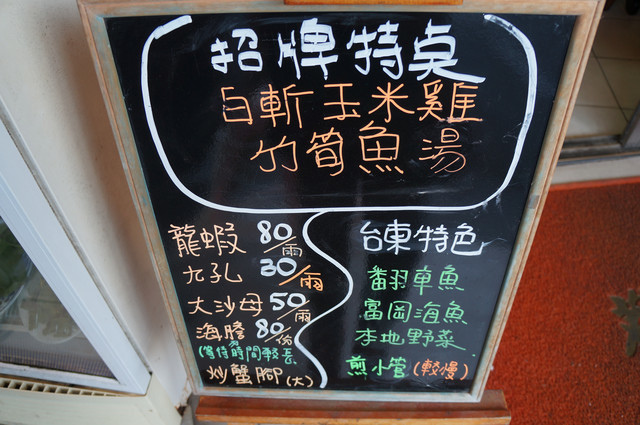 招牌特桌
白斬玉米雞
竹筍魚湯
龍蝦 80/兩
九孔 30/兩
大沙母 50/兩
海膽 80/份
(等待時間較長
炒蟹腳(大)
台東特色
翻車魚
富岡海魚
本地野菜
煎小管(較慢)